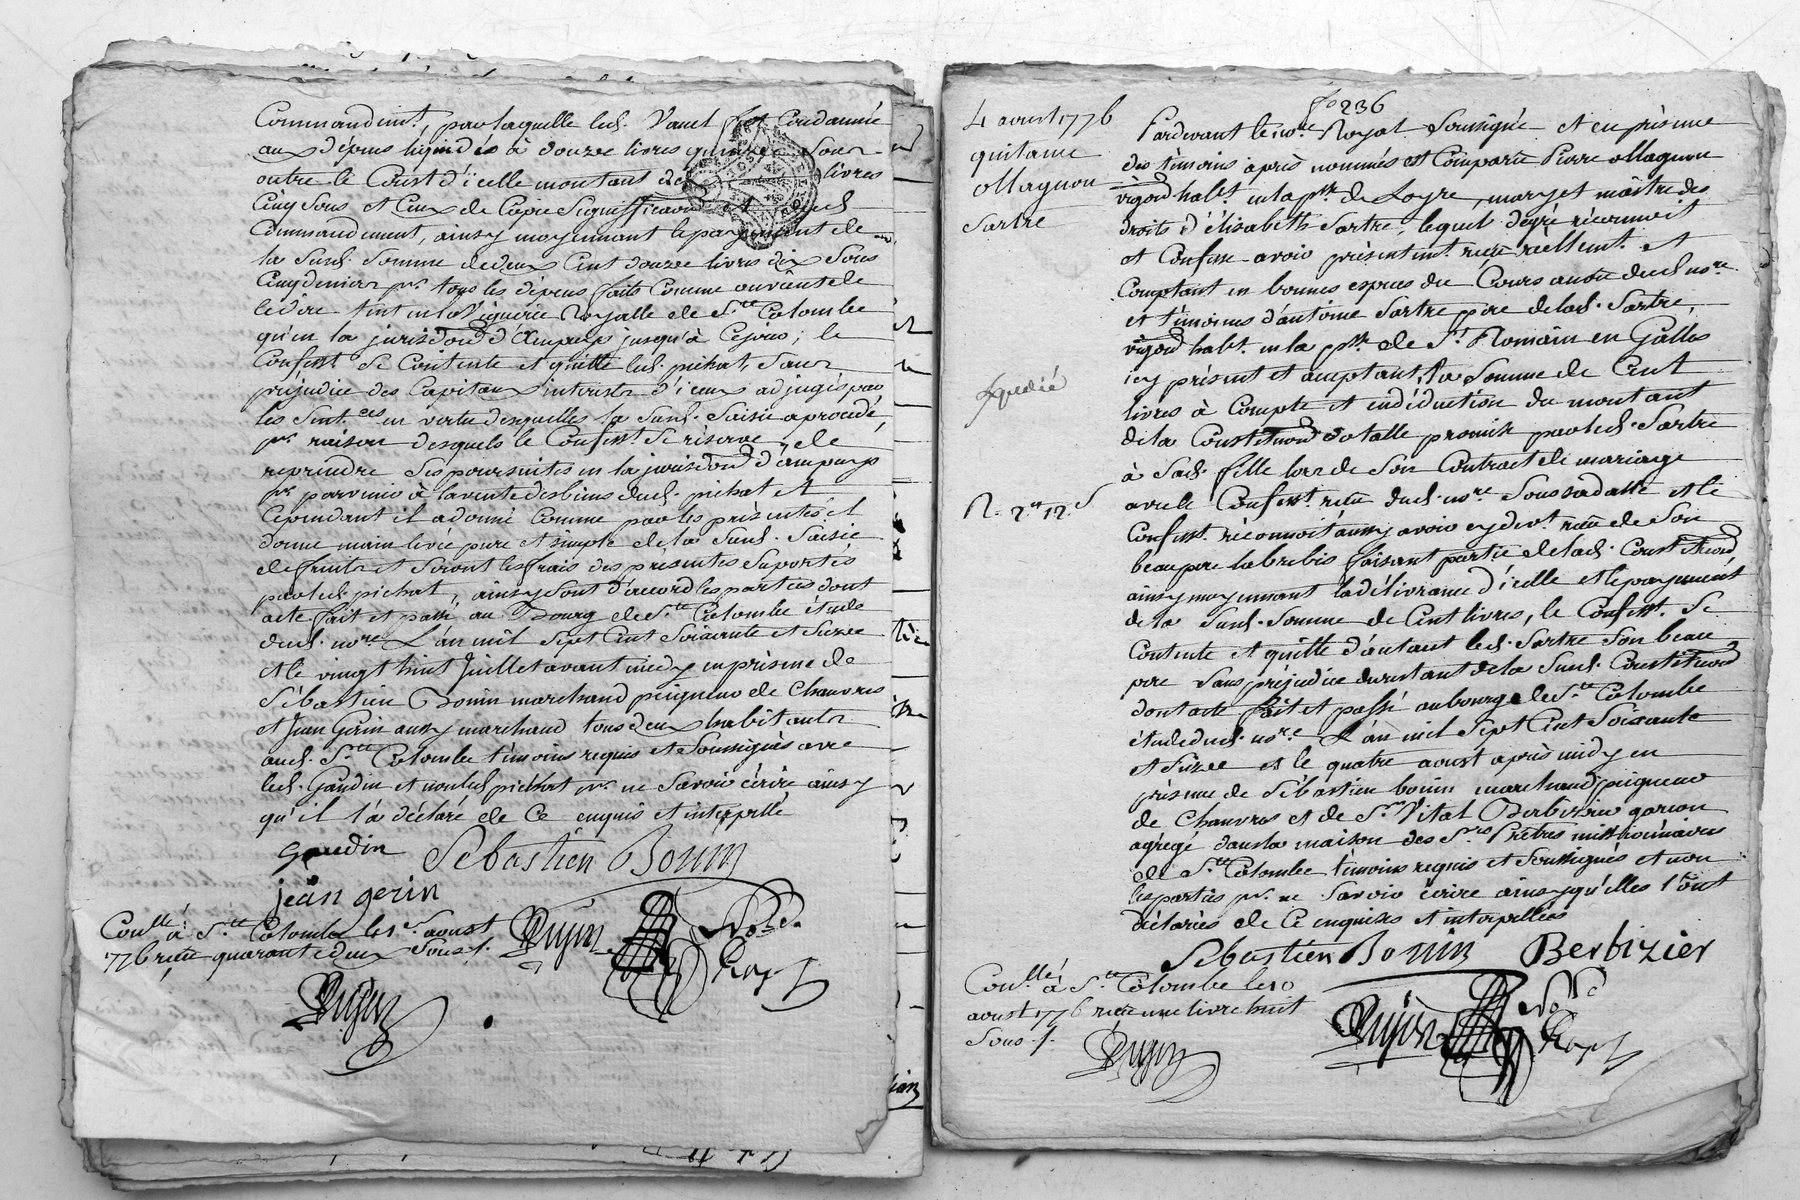 Commandem.t, par laquelle led. Vanel fut Condamné
aux dépens liquidés à douze livres quinze Sous
outre le Coust d'icelle montant livres
Cinq Sous et Ceux de Copie Signiffication et dud.
Commandement, ainsy moyennant le payement de
la Susd. Somme de deux Cent douze livres dix Sous
Cinq deniers pr. tous les dépens faits Comme avant de
le dire tant en la Viguerie Royalle de Ste Colombe
qu'en la jurisdond d'Ampuys jusqu'à Ce jour; le
Confess.t Se Contente et quitte led. pichat, Sans
préjudice des Capitaux interests d'iceux adjugés par
les Sent.ces en vertu desquelles la Susd. Saisie a procédé,
pr. raison desquels le Confess.t Se réserve de
reprendre Ses poursuites en la jurisdond d'ampuys
pr. parvenir à la vente des biens dud. pichat et
Cependant il a donné Comme par les présentes il
donne main levée pure et simple de la Susd. Saisie
de fruits et Seront les frais des présentes Suportés
par led. pichat, ainsy Sont d'accord les parties dont
acte fait et passé au Bourg de Ste Colombe étude
dud. nore. L'an mil Sept Cent Soixante et Seize
et le vingt huit Juillet avant midy en présence de
Sébastien Bonin marchand peigneur de Chanvres
et Jean Gerin aussy marchand tous deux habitants
aud. Ste Colombe témoins requis et Soussignés avec
led. Gaudin et non led. pichat pr. ne Savoir écrire ainsy
qu'il l'a déclaré de Ce enquis et interpellé
gaudin Sebastien Bonin
jean gerin
Conllé à Ste Colombe le 1er aoust
1776 reçu quarante deux Sous
Dujon No.re
Royal
Dujon
fo 236
4 aoust 1776
quitance
Magnon
Sartre
Expedié
R. 2.tt 12.s
Pardevant le nore Royal Soussigné et en présence
des témoins après nommés est Comparu Pierre Magnon
vigeron habt. en la psse de Loyre, mary et maître des
droits d'élisabeth Sartre, lequel degré réconnoit
et Confesse avoir présentemt. reçu réellemt. et
Comptant en bonnes especes du Cours au vu dud. nore
et témoins d'antoine Sartre père de lad. Sartre,
vigeron habt. en la psse de St Romain en Galles
icy présent et acceptant, la Somme de Cent
livres à Compte et en déduction du montant
de la Constitutiond dotalle promise par led. Sartre
à Sad. fille lors de Son Contract de mariage
avec le Confesst. reçu dud. nore Soussa datte et le
Confesst. réconnoit aussy avoir cy devt. reçu de Son
beau pere la brebis faisant partie de lad. Constitutiond
ainsy moyennant la délivrance d'icelle et le payement
de la Susd. Somme de Cent livres, le Confesst. Se
Contente et quitte d'autant led. Sartre Son beau
pere Sans préjudice du restant de la Susd. Constitutiond
dont acte fait et passé au bourg de Ste Colombe
étude dud. nore L'an mil Sept Cent Soixante
et Seize et le quatre aoust après midy en
présence de Sébastien bonin marchand peigneur
de Chanvres et de Sr Vital Berbizier garçon
agrégé dans la maison des Srs Prêtres missionnaires
de Ste Colombe témoins requis et Soussignés et non
les parties pr. ne Savoir écrire ainsy qu'elles l'ont
déclarées de Ce enquises et interpellées
Sebastien Bonin Berbizier
Conllé à Ste Colombe le 10
aoust 1776 reçu une livre huit
Sous
Dujon
Dujon No.re
Royal